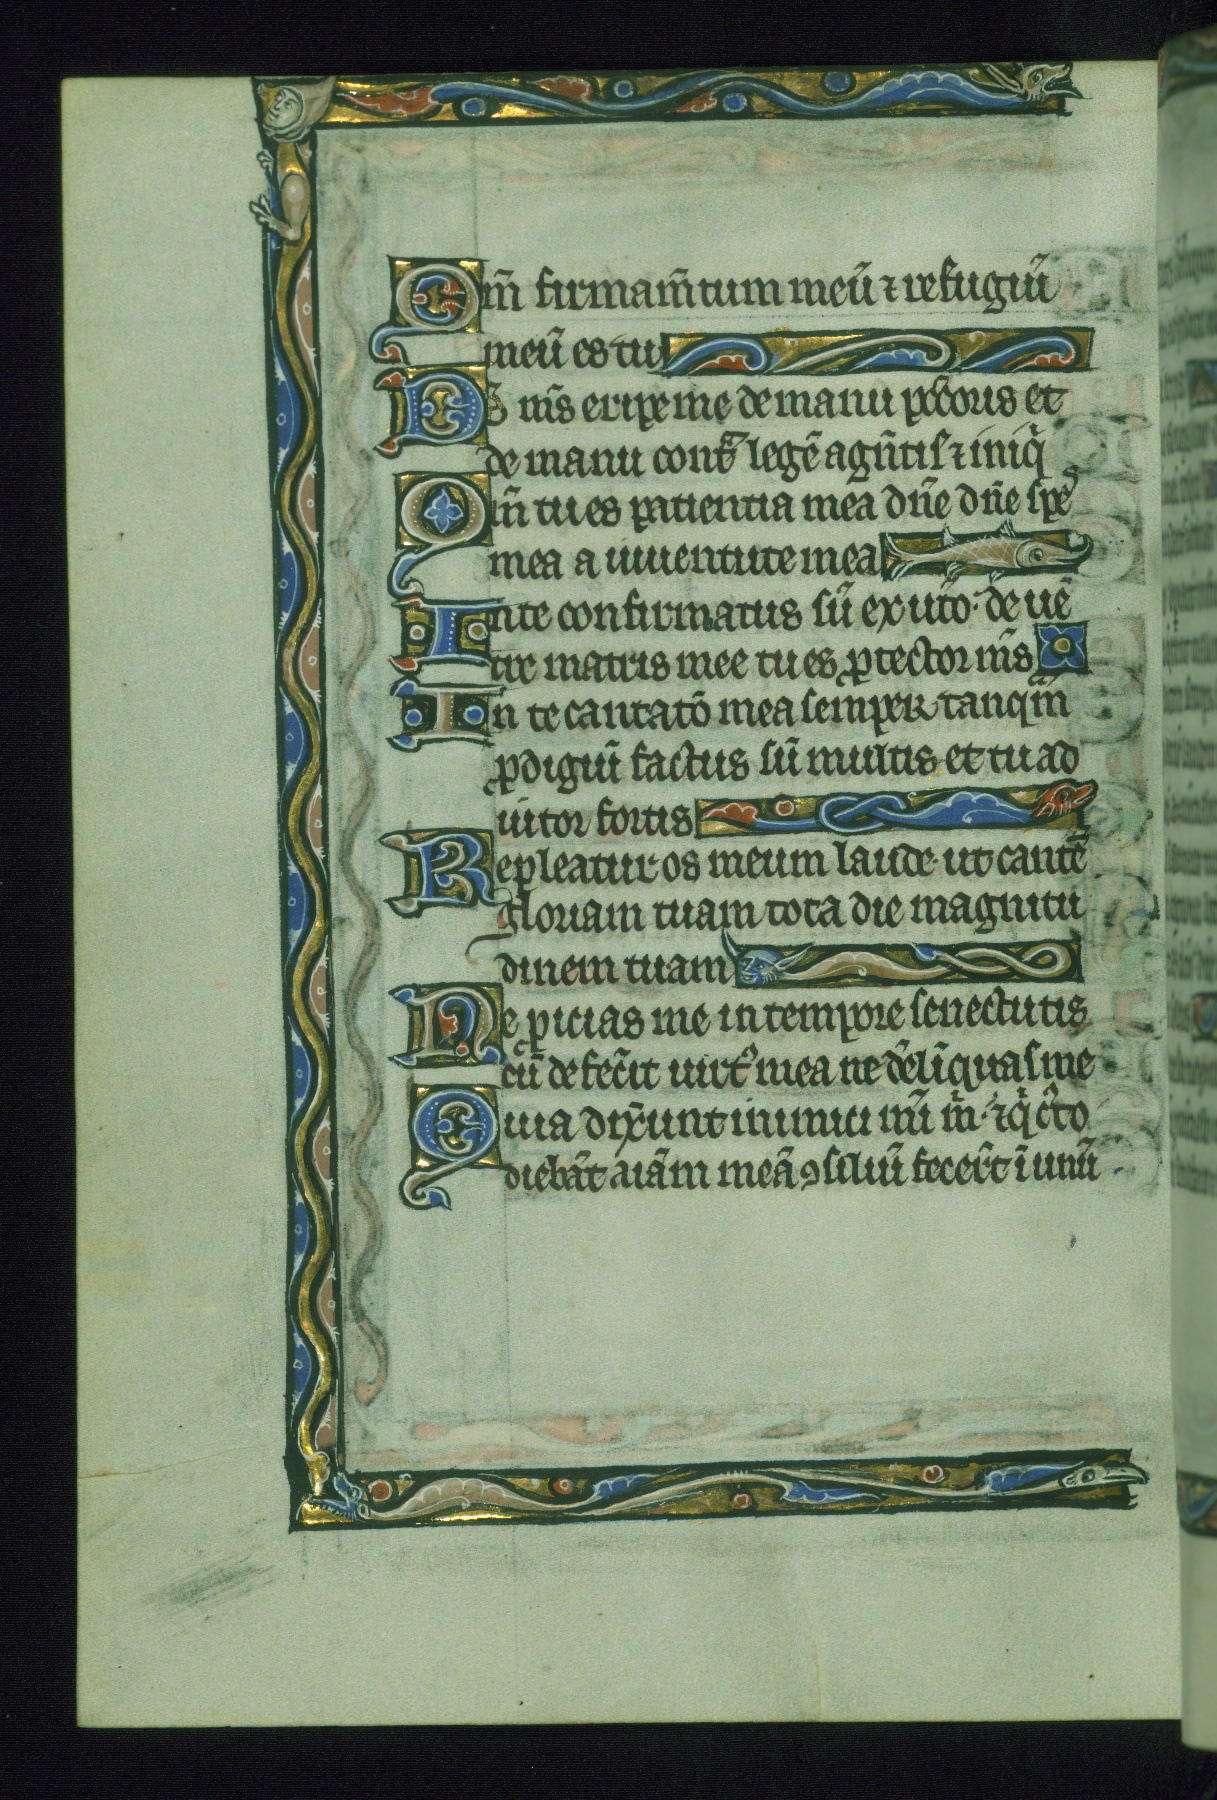 Qm̄ firmam̄tum meū ⁊ refugiū
meū es tu
Ds ms̄ eripe me de manu pc̄c̄oris et
de manu cont̄ legē agn̄tis ⁊ iniq̄
Qm̄ tu es patientia mea dn̄e dn̄e spes
mea a iuuentute mea
In te confirmatus sū ex ut̄o· de uē
tre matris mee tu es ꝓtector ms̄
In te cantatō mea semper tanq̄m
ꝓdigiū factus sū multis et tu ad
iutor fortis
Repleatur os meum laude· ut cantē
gloriam tuam tota die magnitu
dinem tuam
Ne ꝓicias me in tempore senectutis
cū defec̄it uirtꝰ mea ne del̄iquas me
Quia dix̄unt inimici mī m̄· ⁊ q̄ c̄to
diebāt aīam meā ꝯsiliū fecer̄t ī unū